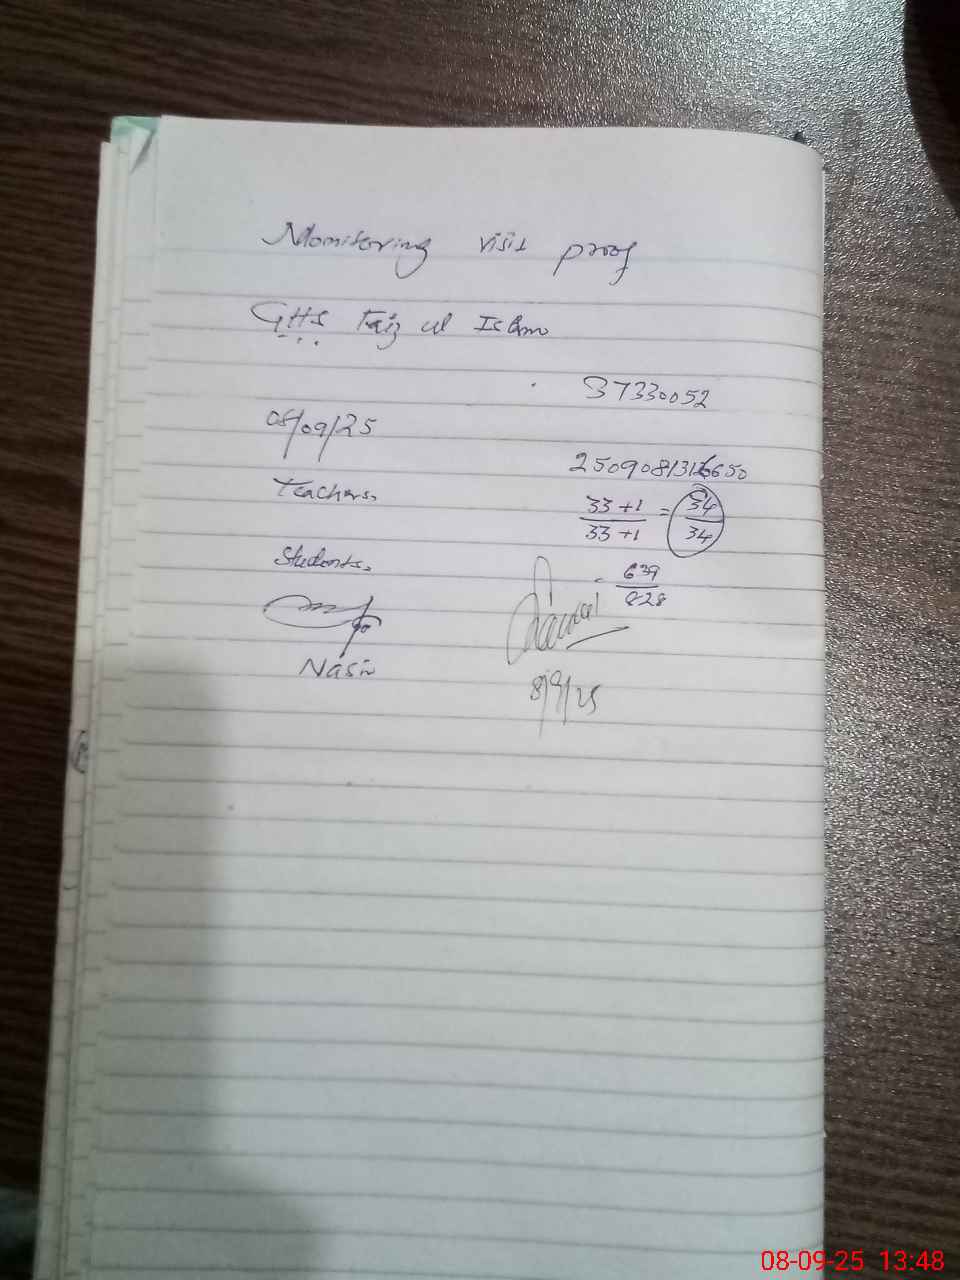 Monitoring visit proof
GHS Faiz ul Islam
37330052
08/09/25
Teachers.
33+1 / 33+1 = 34 / 34
Students.
= 639 / 828
Nasir
8/9/25
08-09-25 13:48